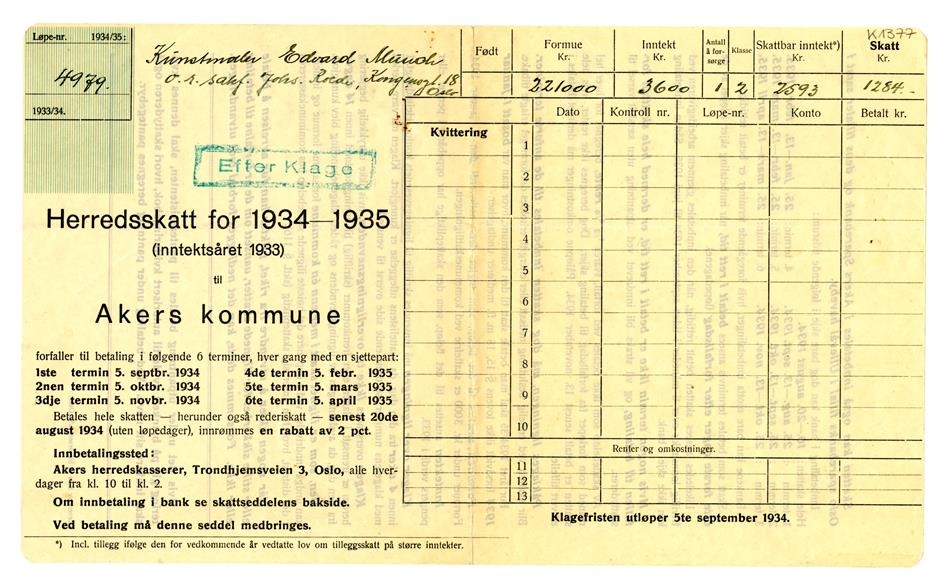 Løpe-nr. 1934/35:
4979.
1933/34.
Kunstmaler Edvard Munch
o.r.sakf. Johs. Roede, Kongensgt. 18
Oslo
Født
Formue
Kr.
221000
Inntekt
Kr.
3600
Antall
å for-
sørge
1
Klasse
2
Skattbar inntekt*)
Kr.
2593
K1377
Skatt
Kr.
1284.-
Kvittering
Dato Kontroll nr. Løpe-nr. Konto Betalt kr.
1
2
3
4
5
6
7
8
9
10
Renter og omkostninger.
11
12
13
Klagefristen utløper 5te september 1934.
Efter Klage
Herredsskatt for 1934—1935
(inntektsåret 1933)
til
Akers kommune
forfaller til betaling i følgende 6 terminer, hver gang med en sjettepart:
1ste termin 5. septbr. 1934 4de termin 5. febr. 1935
2nen termin 5. oktbr. 1934 5te termin 5. mars 1935
3dje termin 5. novbr. 1934 6te termin 5. april 1935
Betales hele skatten — herunder også rederiskatt — senest 20de
august 1934 (uten løpedager), innrømmes en rabatt av 2 pct.
Innbetalingssted:
Akers herredskasserer, Trondhjemsveien 3, Oslo, alle hver-
dager fra kl. 10 til kl. 2.
Om innbetaling i bank se skattseddelens bakside.
Ved betaling må denne seddel medbringes.
*) Incl. tillegg ifølge den for vedkommende år vedtatte lov om tilleggsskatt på større inntekter.